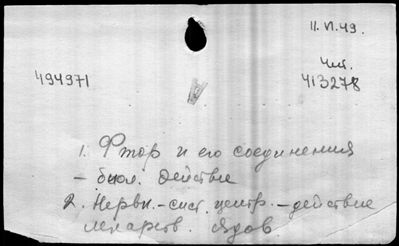 11.VI.49.
Чит.
494971
413278
1. Фтор и его соединения
- биол. действие
2. Нервн.-сист. центр. - действие
лекарств. ядов.